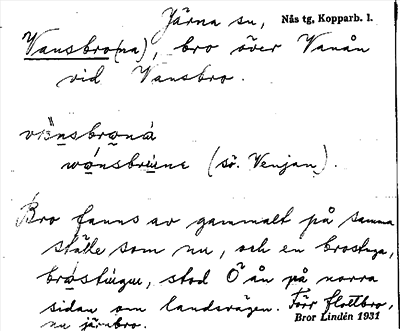 Järna sn, Nås tg, Kopparb. l.
Vansbro(na), bro över Vanån
vid Vansbro.
(sö. Venjan).
Bro fanns av gammalt på samma
ställe som nu, och en brostuga,
stod Ö ån på norra
sidan om landsvägen. Förr flottbro,
nu järnbro.
Bror Lindén 1931